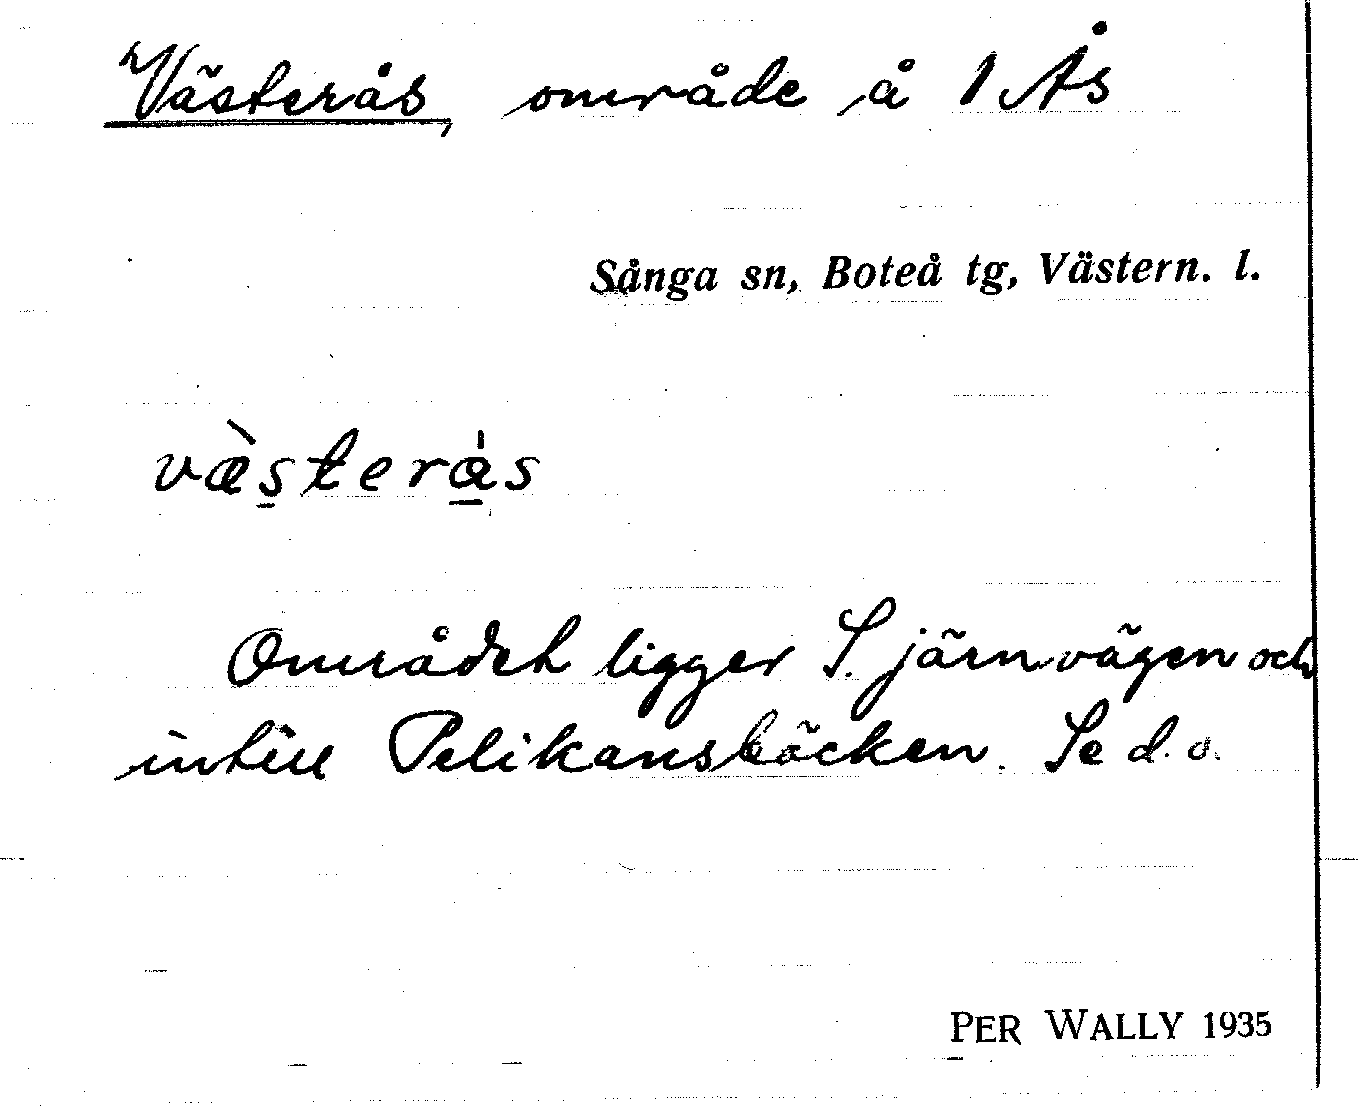 Västerås, område å 1 Ås
Sånga sn, Boteå tg, Västern. l.
væ̀sterås
Området ligger S. järnvägen och
intill Pelikansbäcken. Se d. o.
PER WALLY 1935